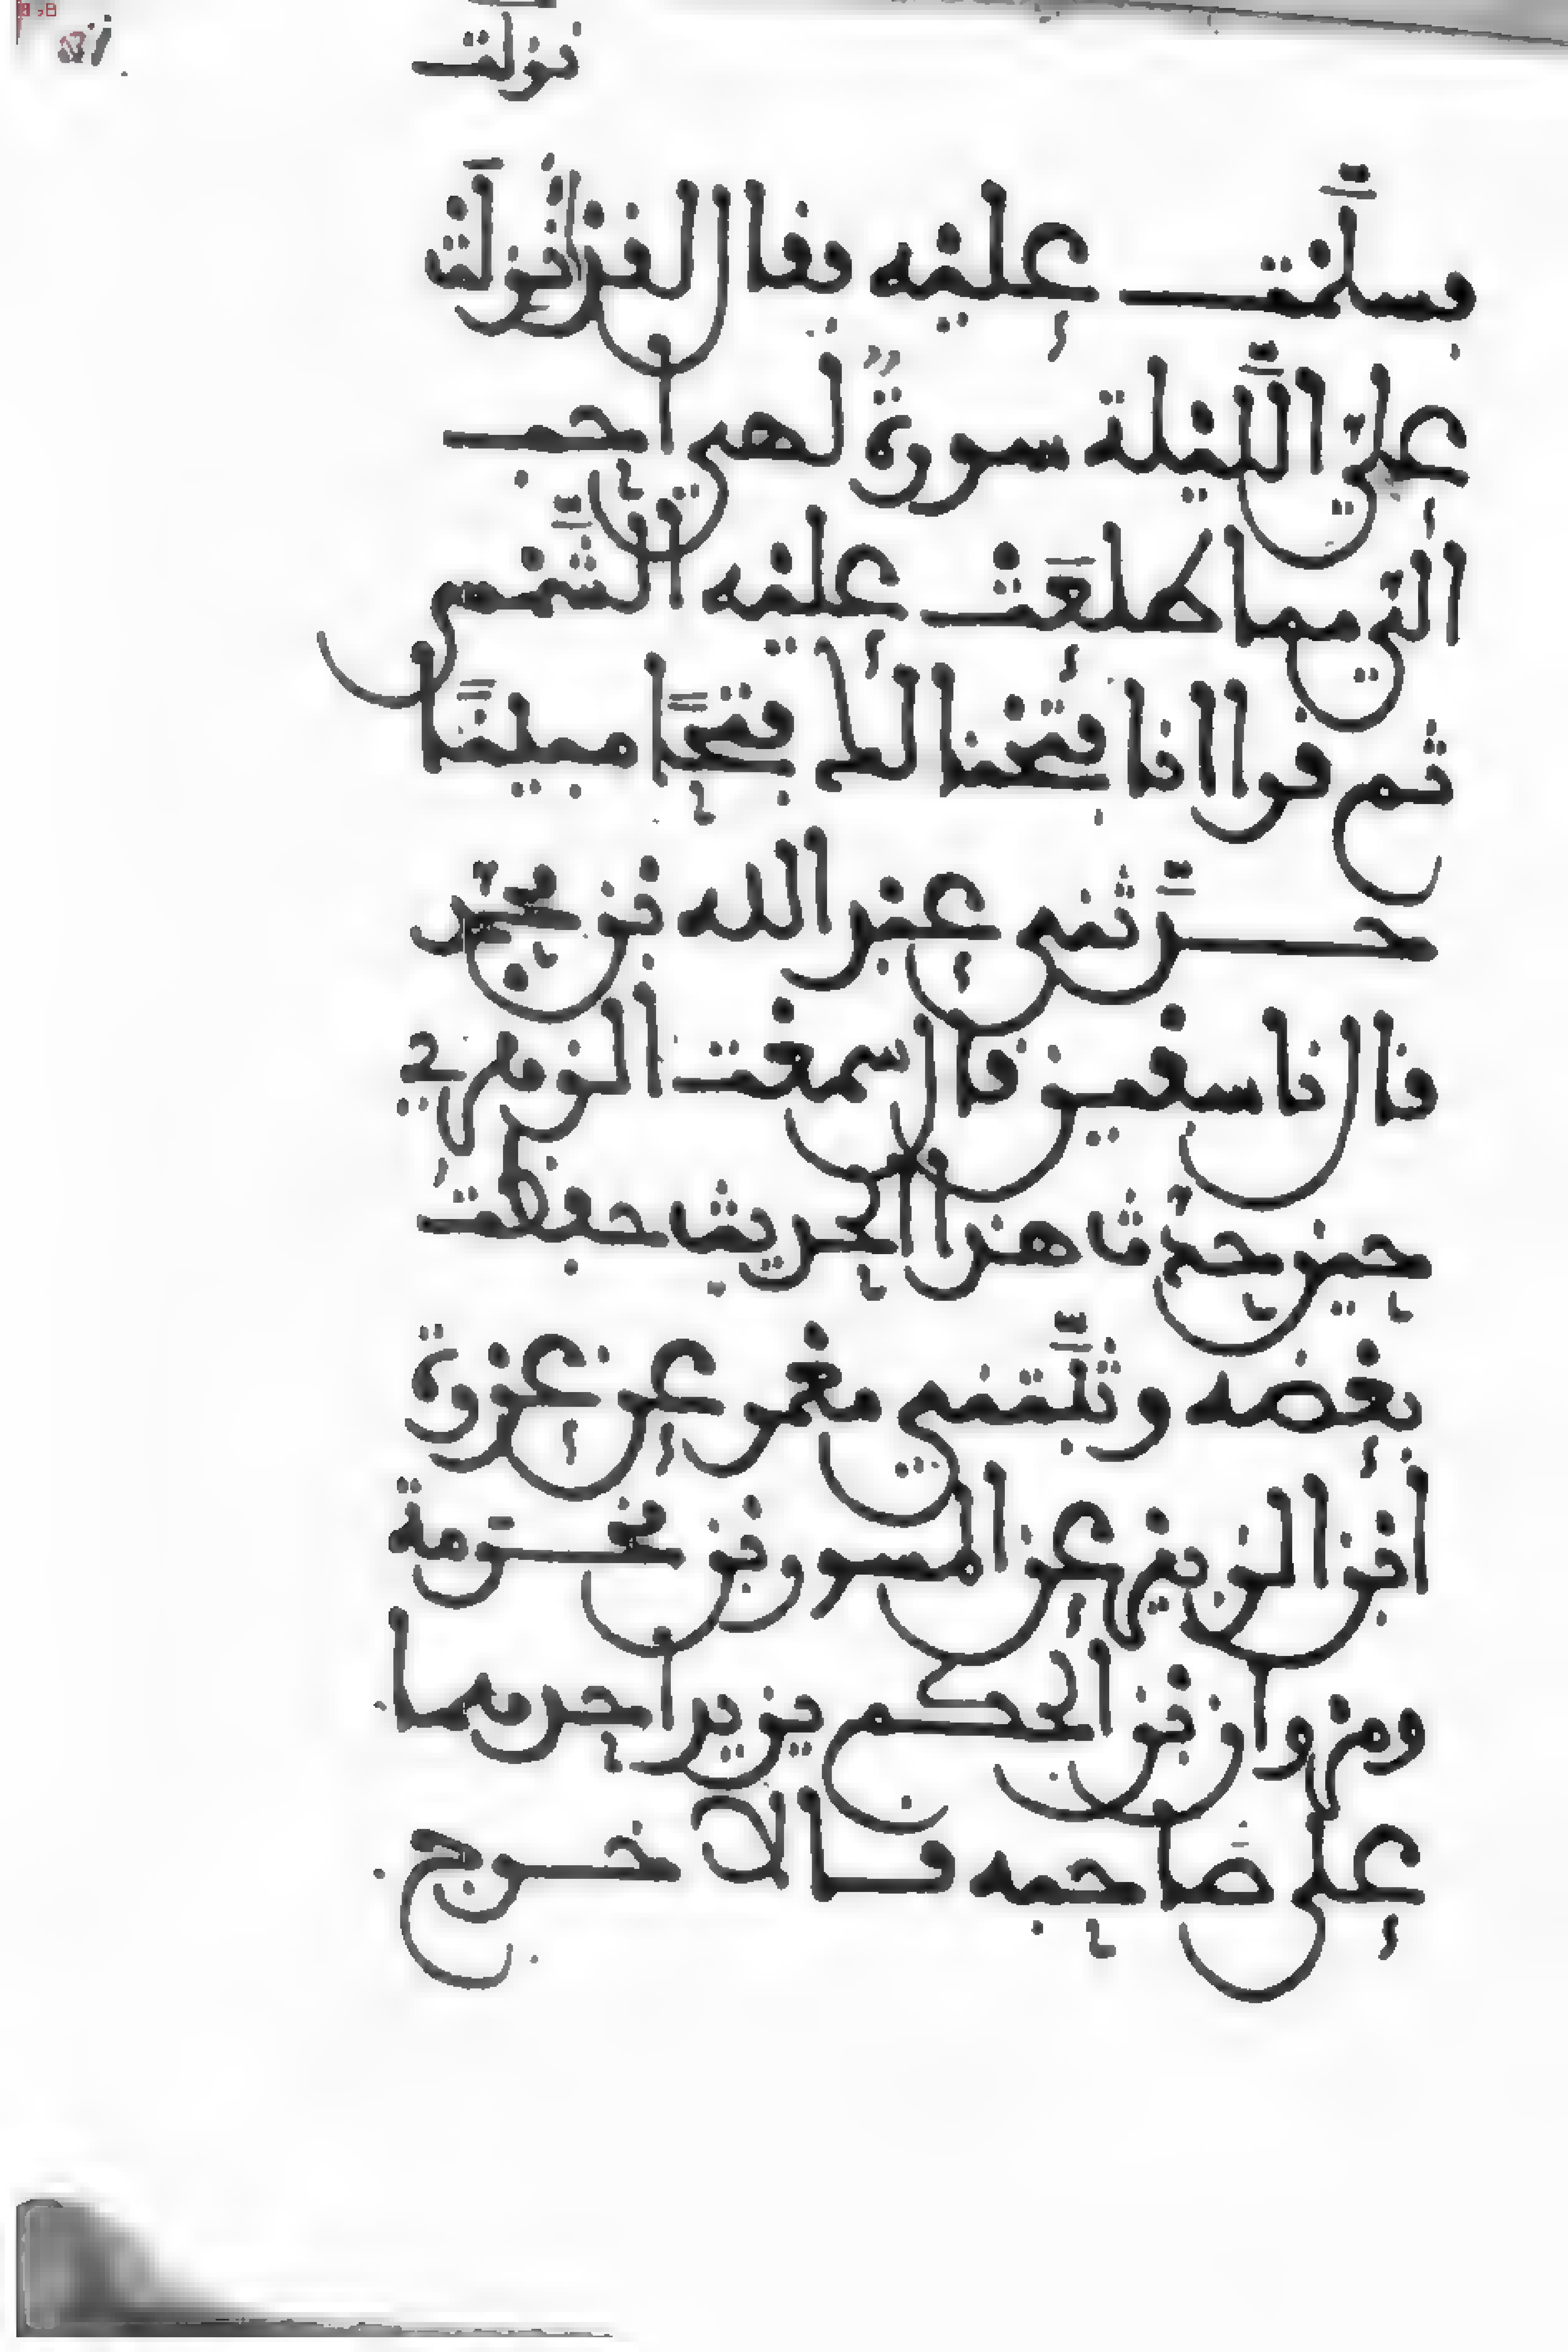 نزلت
فسلمت عليه فقال لقد انزلت
علي الليلة سورة لهي احب
الي مما طلعت عليه الشمس
ثم قرا انا فتحنا لك فتحا مبينا
حدثني عبد الله بن محمد
قال نا سفين قال سمعت الزهري
حين حدث هذا الحديث حفظت
بعضه وثبتني معمر عن عروة
ابن الزبير عن المسور بن مخرمة
ومروان بن الحكم يزيد احدهما
على صاحبه قالا خرج